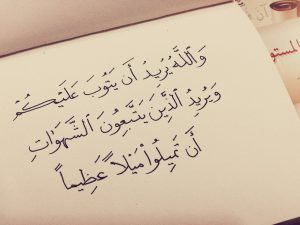 وَاللَّهُ يُرِيدُ أَن يَتُوبَ عَلَيْكُمْ
وَيُرِيدُ الَّذِينَ يَتَّبِعُونَ الشَّهَوَاتِ
أَن تَمِيلُواْ مَيْلاً عَظِيماً